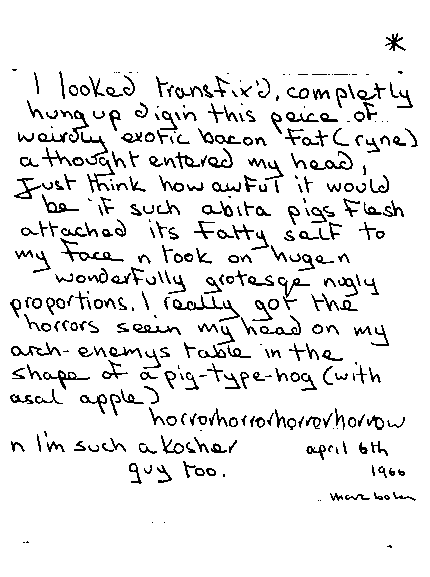 *
I looked transfix'd, completly
hung up digin this peice of
weirdly exotic bacon fat (ryne)
a thought entered my head,
Just think how awful it would
be if such abita pigs flesh
attached its fatty self to
my face n took on hugen
wonderfully grotesqe nugly
proportions. I really got the
horrors seein my head on my
arch-enemys table in the
shape of a pig-type-hog (with
asal apple)
horrorhorrorhorrorhorrow
n I'm such a kosher
guy too.
april 6th
1966
marc bolan